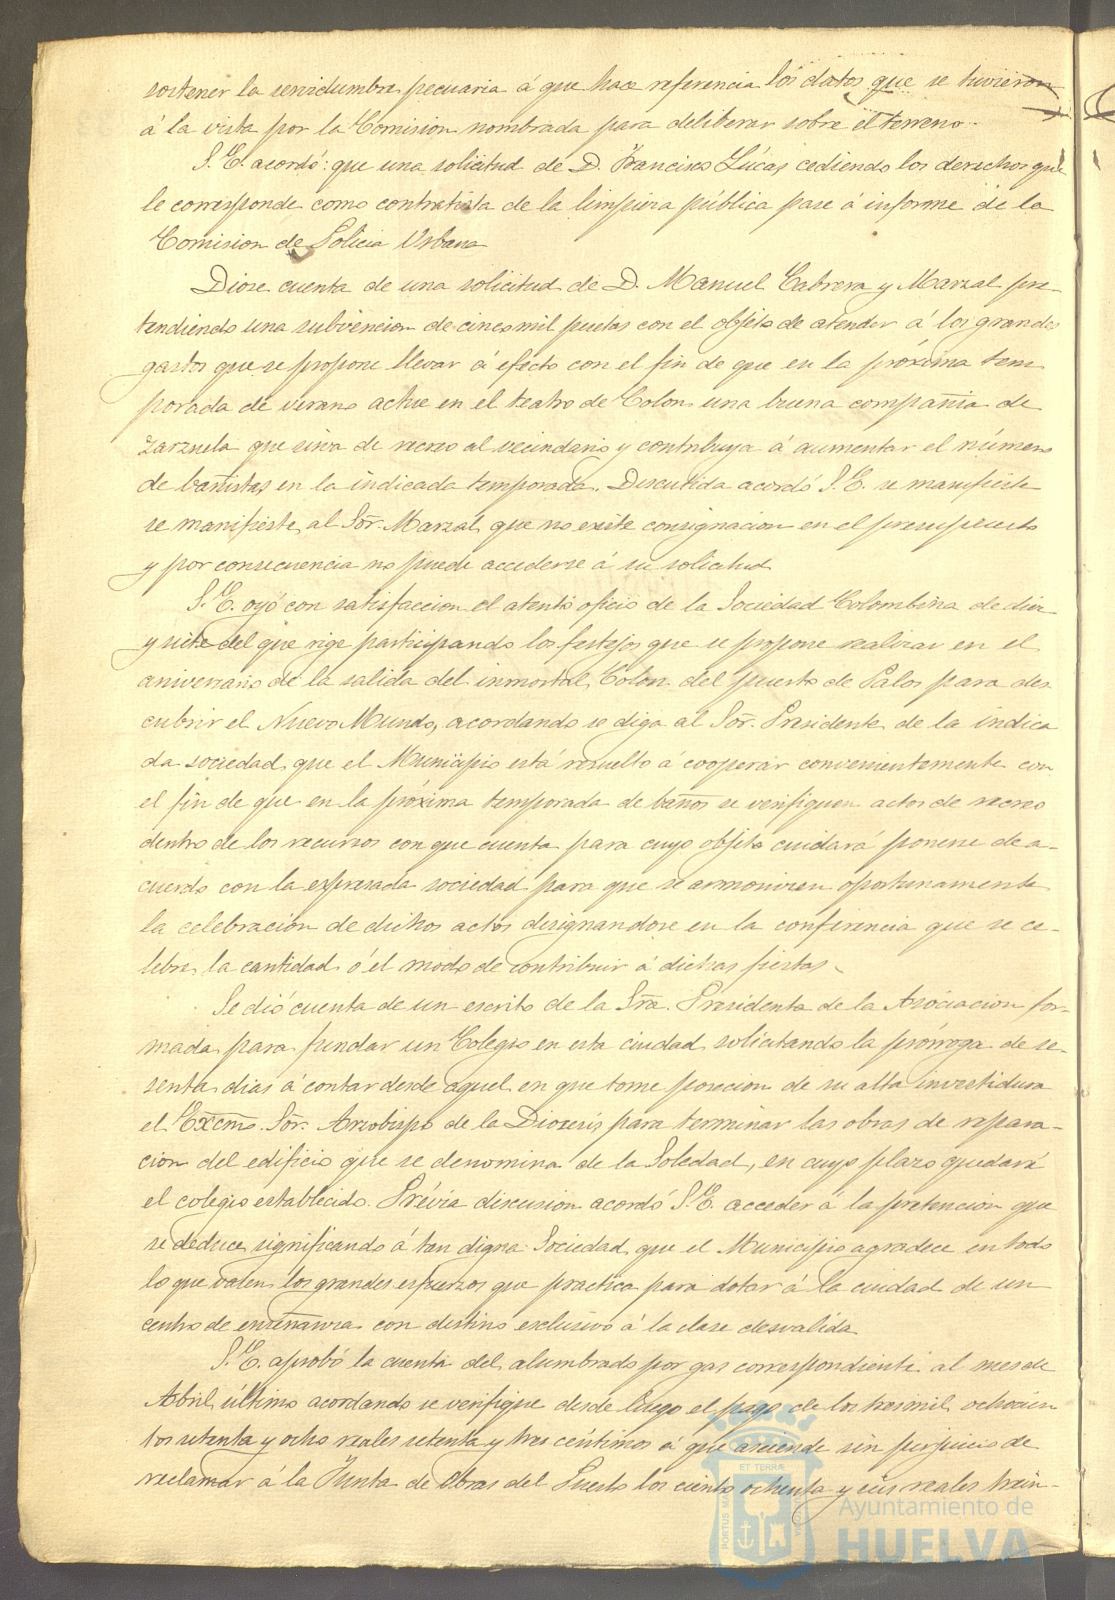 sostener la servidumbre pecuaria á que hace referencia los datos que se tuvieron
á la vista por la Comision nombrada para deliberar sobre el terreno.
S. E. acordó: que una solicitud de D. Francisco Lúcas cediendo los derechos que
le corresponde como contratista de la limpieza pública pase á informe de la
Comision de Policia Urbana
Diose cuenta de una solicitud de D. Manuel Cabrera y Marzal pre-
tendiendo una subvencion de cincomil pesetas con el objeto de atender á los grandes
gastos que se propone llevar á efecto con el fin de que en la próxima tem
porada de verano actue en el teatro de Colon una buena compañia de
zarzuela que sirva de recreo al vecindario y contribuya á aumentar el número
de bañistas en la indicada temporada. Discutida acordó S. E. se manifieste
se manifieste al Sor. Marzal que no existe consignacion en el presupuesto
y por consecuencia no puede accederse á su solicitud
S. E. oyó con satisfaccion el atento oficio de la Sociedad Colombina de diez
y siete del que rige participando los festejos que se propone realizar en el
aniversario de la salida del inmortal Colon del puerto de Palos para des
cubrir el Nuevo Mundo, acordando se diga al Sor. Presidente de la indica
da sociedad que el Municipio está resuelto á cooperar convenientemente con
el fin de que en la próxima temporada de baños se verifiquen actos de recreo
dentro de los recursos con que cuenta para cuyo objeto cuidará ponerse de a-
cuerdo con la expresada sociedad para que se armonizen oportunamente
la celebración de dichos actos designandose en la conferencia que se ce-
lebre la cantidad ó el modo de contribuir á dichas fiestas.
Se dió cuenta de un escrito de la Sra. Presidenta de la Asociacion for-
mada para fundar un Colegio en esta ciudad solicitando la prórroga de se-
senta dias á contar desde aquel en que tome posecion de su alta investidura
el Excmo. Sor. Arzobispo de la Diocesis para terminar las obras de repara-
cion del edificio que se denomina de la Soledad, en cuyo plazo quedará
el colegio establecido. Prévia discusion acordó S. E. acceder á la pretencion que
se deduce significando á tan digna Sociedad que el Municipio agradece en todo
lo que valen los grandes esfuerzos que practica para dotar á la ciudad de un
centro de enseñanza con destino exclusivo á la clase desvalida
S. E. aprobó la cuenta del alumbrado por gas correspondiente al mes de
Abril último acordando se verifique desde luego el pago de los tresmil ochocien
tos setenta y ocho reales setenta y tres céntimos á que asciende sin perjuicio de
reclamar á la Junta de Obras del Puerto los ciento ochenta y seis reales trein-
PORTUS MARIS
ET TERRAE
Ayuntamiento de
HUELVA